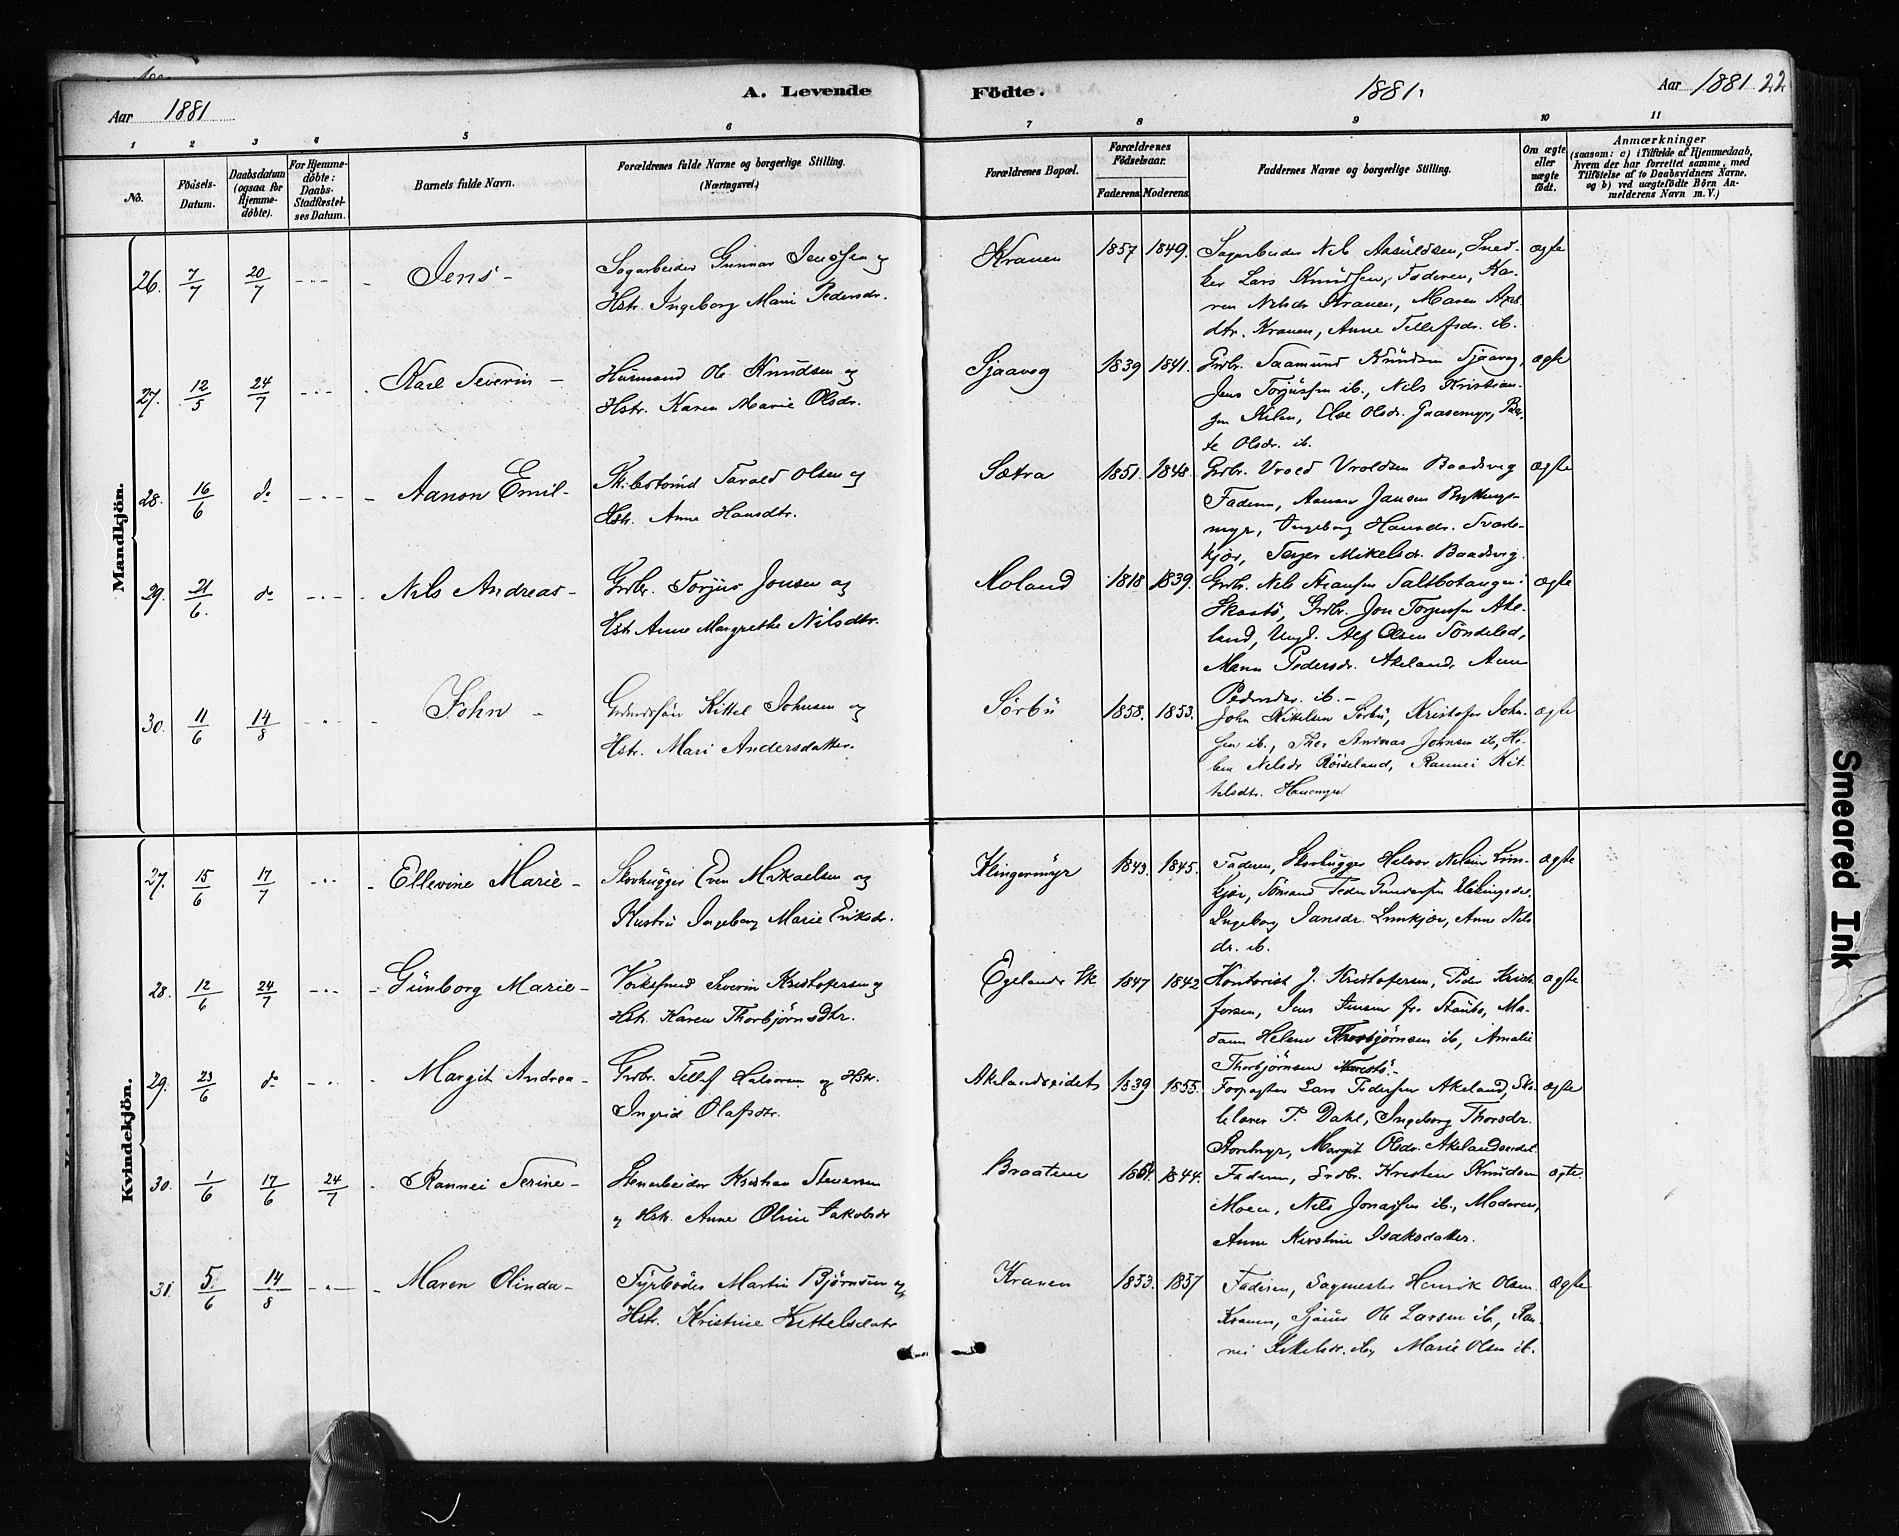 Aar 1881
A. Levende
Fødte.
1881.
Aar 1881 22
1 2 3 4 5 6 7 8 9 10 11
No.
Fødsels-Datum.
Daabsdatum (ogsaa for Hjemme-døbte).
For Hjemme-døbte: Daabs-Stadfæstel-ses Datum.
Barnets fulde Navn.
Forældrenes fulde Navne og borgerlige Stilling. (Næringsvei.)
Forældrenes Bopæl.
Forældrenes Fødselsaar.
Faderens. Moderens.
Faddernes Navne og borgerlige Stilling.
Om ægte eller uægte født.
Anmærkninger
(saasom: a) i Tilfælde af Hjemmedaab,
hvem der har forrettet samme, med
Tilføielse af to Daabsvidners Navne,
og b) ved uægtefødte Børn An-
melderens Navn m. V.)
Mandkjön.
26. 7/7 20/7 Jens - Sagarbeider Gunnar Jenssen og
Hstr. Ingeborg Marie Pedersdr.
Kranen 1857 1849. Sagarbeider Nils Asuldsen, Sned-
ker Lars Knudsen, Faderen, Ka-
ren Nilsdr. Kranen, Maren Axels
dtr. Kranen, Anne Tellefsdr. ib.
ægte
27. 12/5 24/7 Karl Severin - Husmand Ole Knudsen og
Hstr. Karen Marie Olsdr.
Sjaavog 1839 1841. Grdbr. Saamund Knudsen Sjaavog,
Jens Torjussen ib., Nils Kristian-
sen Kilen, Else Olsdr. Gaasemyr, Ber-
te Olsdr. ib.
ægte
28. 16/6 do Aanon Emil - Skibstømd Tarald Olsen og
Hstr. Anne Hansdtr.
Sætra 1851. 1848. Grdbr. Vrold Vroldsen Baadsvig
Faderen, Aanon Jansen
myr, Ingeborg Hansdr. Svarts-
kjær, Mikelsdr. Baadsvig.
ægte
29. 21/6 do Nils Andreas - Grdbr. Torjus Jonsen og
Hstr Anne Margrethe Nilsdtr.
1818 1839. Grdbr. Nils Hansen Saltbotangen i
Skaatø, Grdbr. Jon Torjussen Ake-
land, Ungk. Alf Olsen Søndeled,
Maren Pedersdr. Akeland, Anne
Pedersdr. ib. -
ægte
30. 11/6 14/8 John - Kittel Johnsen og
Hstr. Mari Andersdatter.
Sørbø 1858. 1853. John Kittelsen Sørbø, Kristofer John-
sen ib., Thor Andreas Johnsen ib, He-
lene Nilsdr Røiseland, Rannei Kit-
telsdtr. Hanemyr
ægte
Kvindekjön.
27. 15/6 17/7 Ellevine Marie - Skovhugger Even Mikaelsen og
Hustru Ingeborg Marie Eriksdr.
Klingermyr 1843. 1845. Faderen, Skovhugger Halvor Nilsen Lim-
kjær, Sømand Peder Gundersen
Ingeborg Jansdr. Limkjær, Anne Nils
dr. ib.
ægte
28. 12/6 24/7 Gunborg Marie - Verksmed Severin Kristofersen og
Hstr. Karen Thorbjørnsdtr.
Egelands Vk 1847 1842 Kontorist J. Kristofersen, Peder Kristo-
fersen, Jens Jensen fr. Staubø, Ma-
dam Helene Thorbjørnsen ib, Amalie
Thorbjørnsen
ægte
29. 23/6 do Margit Andrea - Grdbr. Tellef Halvorsen og Hstr.
Ingrid Olafsdtr.
Akelandseidet 1839 1855. Forpagter Lars Pedersen Akeland, Sko-
lelærer P. Dahl, Ingeborg Thorsdr.
Stormyr, Margit Olsdr. Akelandseidet
ægte
30. 1/6 17/6 24/7 Rannei Serine - Stenarbeider Kristian Stenersen
og Hstr. Anne Oline Jakobsdr
Braatene 1844. Faderen, Grdbr. Kristen Knudsen
Moen, Nils Jonassen ib., Moderen,
Anne Kirstine Isaksdatter.
ægte.
31. 5/6 14/8 Maren Olinda - Fyrbøder Martin Bjørnsen og
Hstr. Kristine Kittelsdatr
Kranen 1853. 1857 Faderen, Sagmester Henrik Olsen
Kranen, Sjøms Ole Larsen ib., Ran-
nei Kittelsdr. ib, Marie Olsen ib.
ægte
Smeared Ink